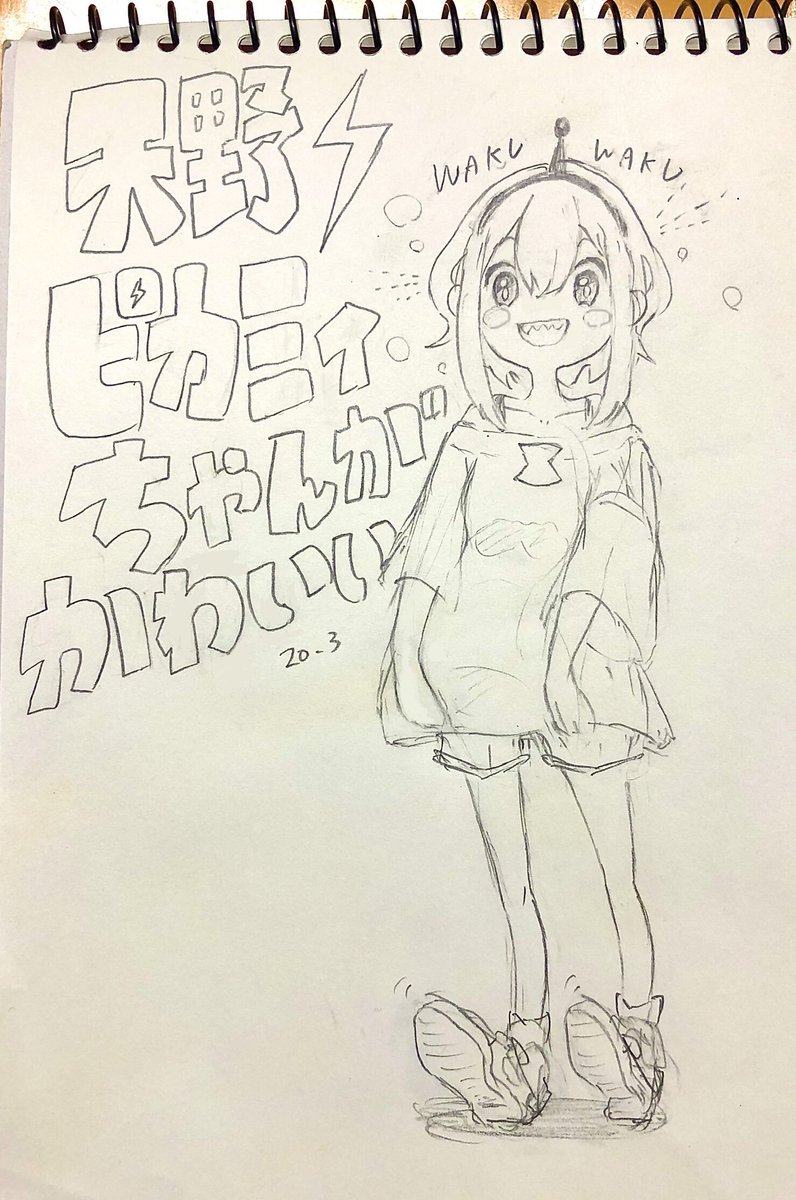 天野⚡
ピカミィ
ちゃんが
かわいい
20-3
WAKU WAKU